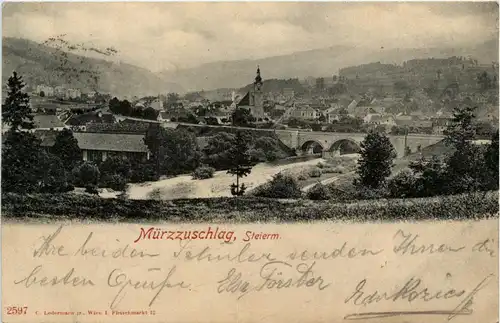 Mürzzuschlag, Steierm.
Ihre beiden Schüler senden Ihnen die
besten Grüße Elsa Förster
2597 C. Ledermann jr., Wien, I. Fleischmarkt 12